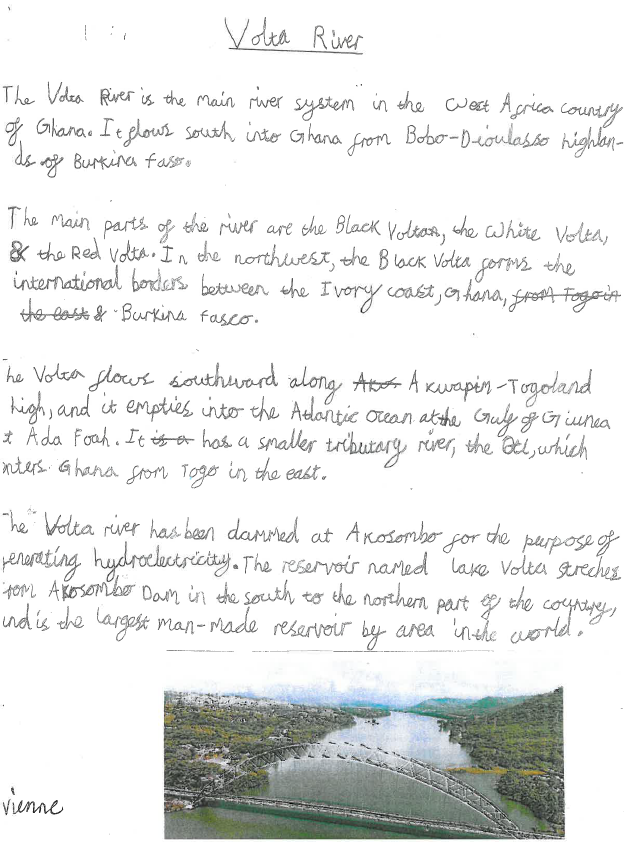 Volta River
The Volta River is the main river system in the west Africa country
of Ghana. It flows south into Ghana from Bobo-Dioulasso highlan-
ds of Burkina Faso.
The main parts of the river are the Black Volta, the White Volta,
& the Red Volta. In the northwest, the Black Volta forms the
international borders between the Ivory coast, Ghana, from Togo in
the east & Burkina Fasco.
he Volta flows southward along Akos A kwapin-Togoland
high, and it empties into the Adlantic Ocean at the Gulf of Giunea
t Ada Foah. It is a has a smaller tributary river, the Otl, which
nters Ghana from Togo in the east.
The Volta river has been dammed at Akosombo for the purpose of
enerating hydroelectricity. The reservoir named lake Volta streches
rom Akosombo Dam in the south to the northern part of the country,
and is the largest man-made reservoir by area in the world.
vienne